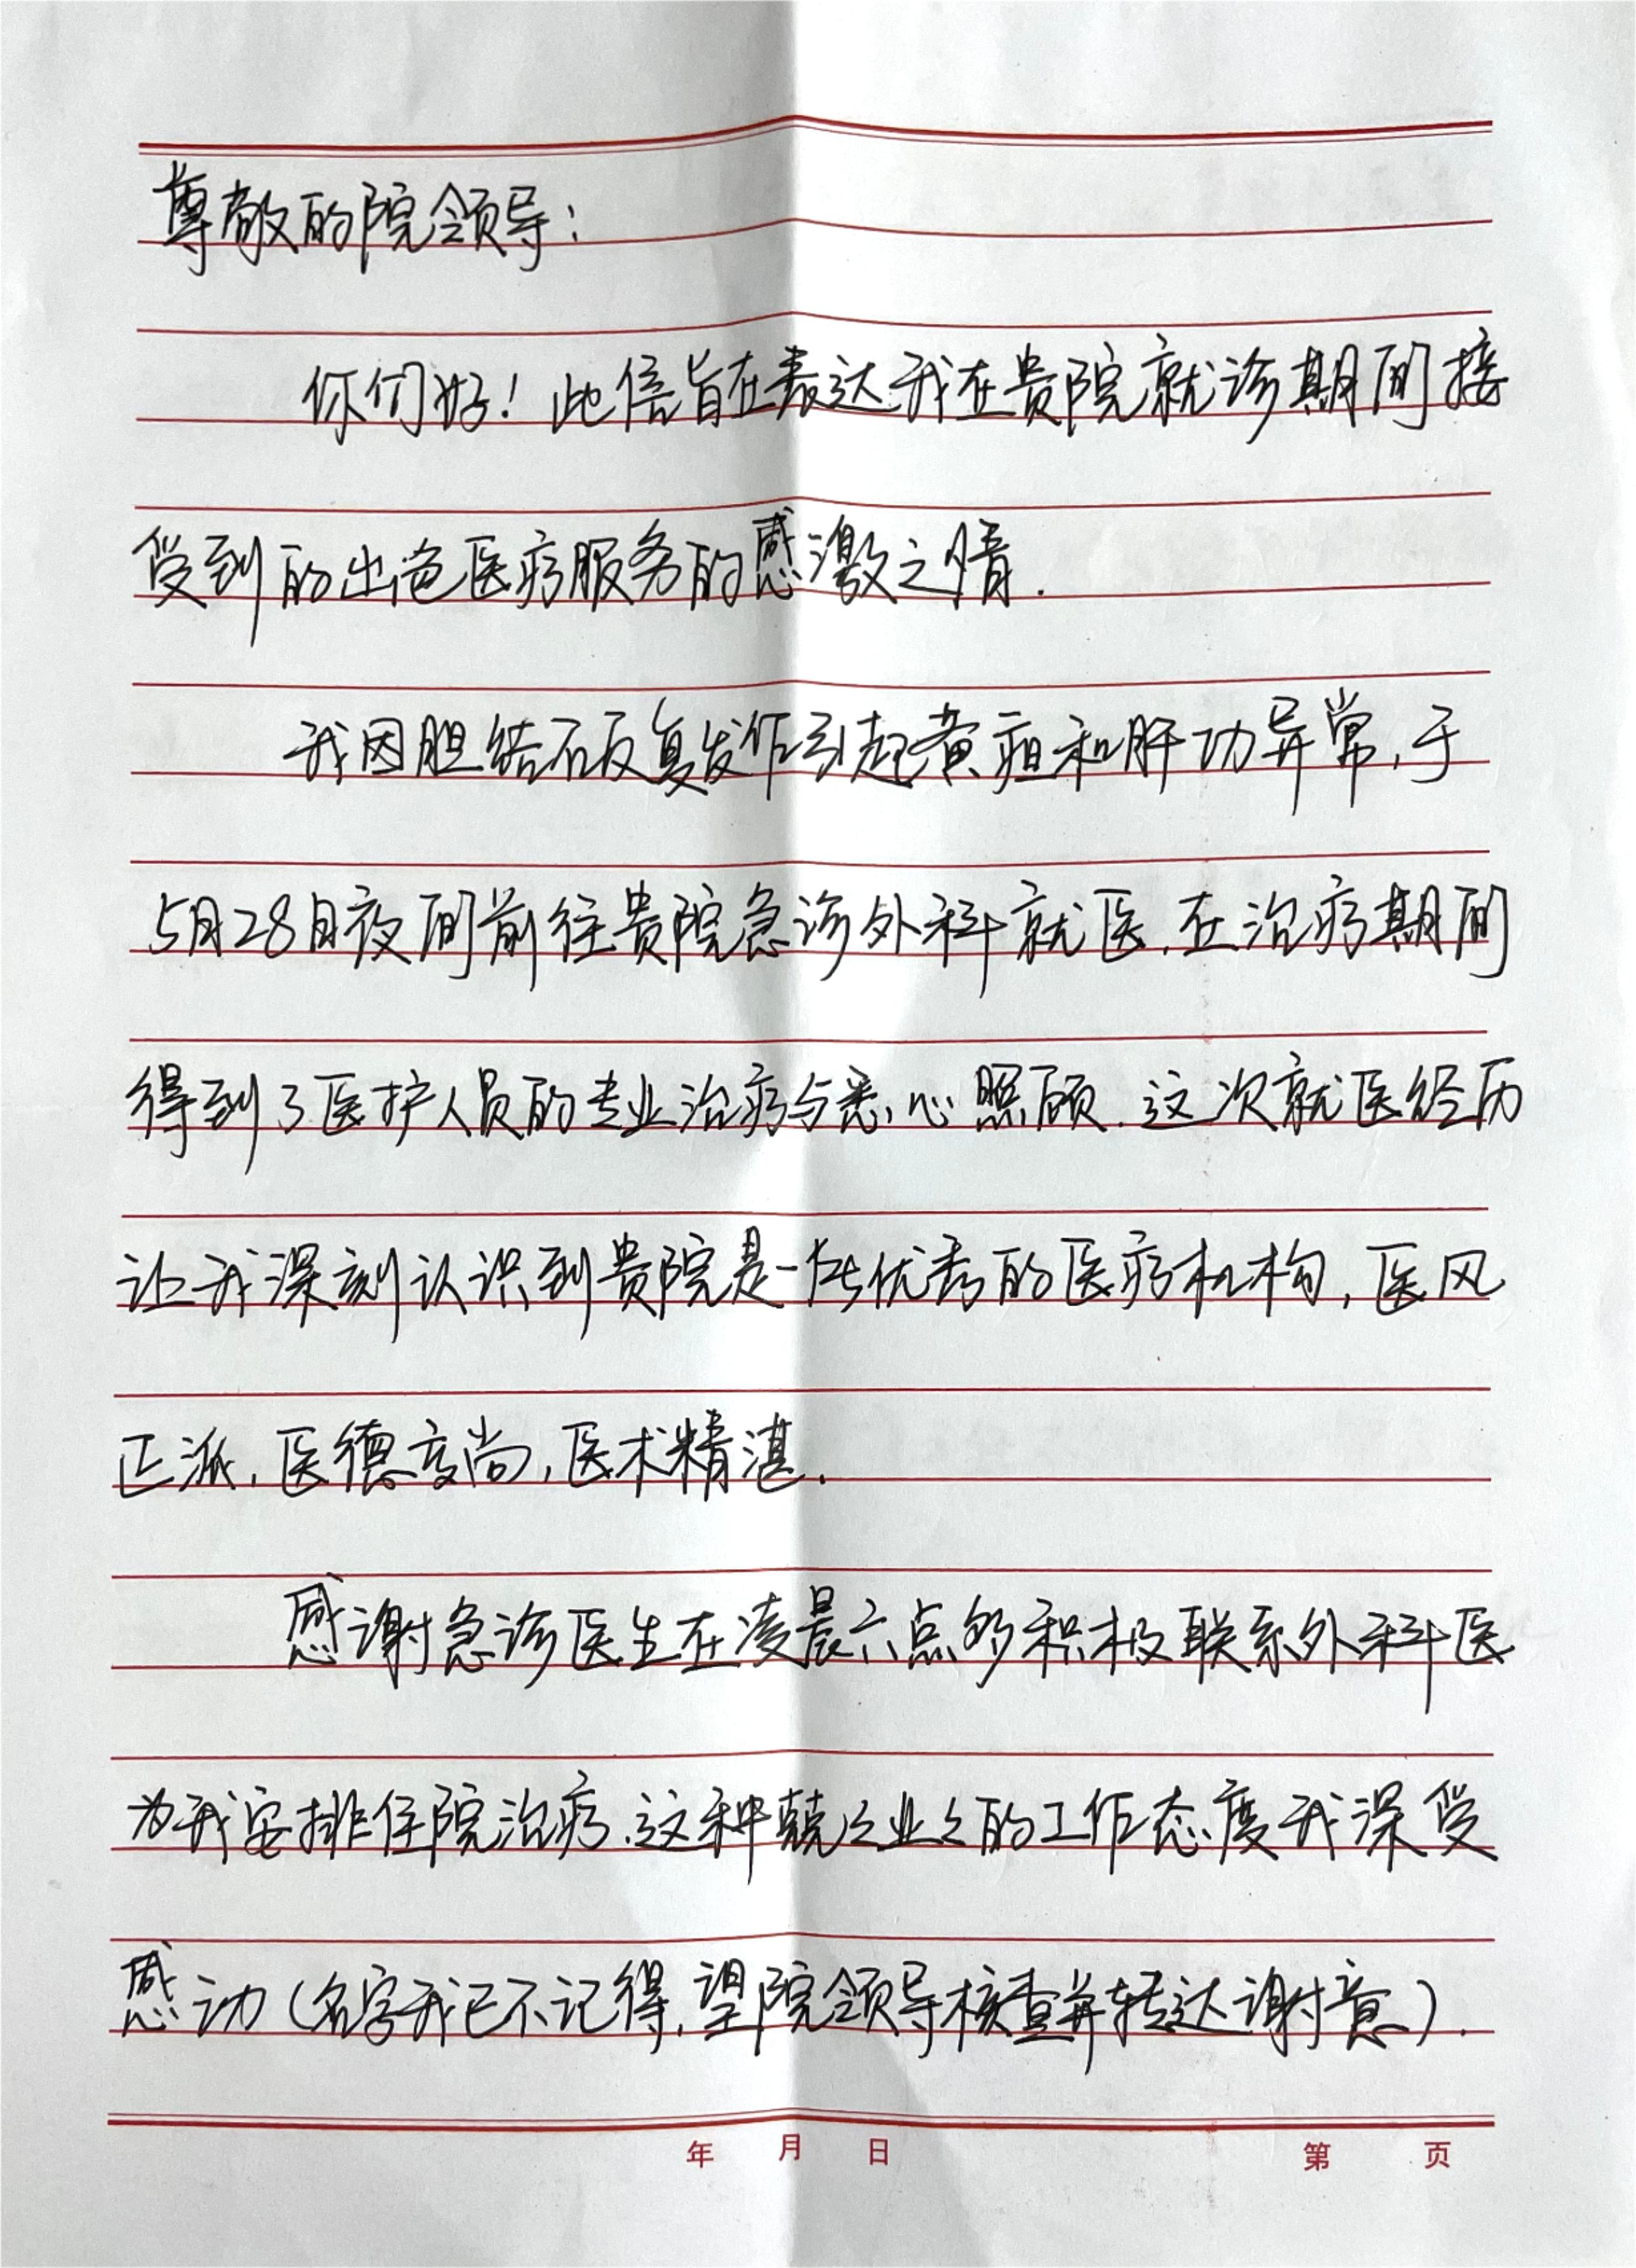 尊敬的院领导：
你们好！此信旨在表达我在贵院就诊期间接
受到的出色医疗服务的感激之情.
我因胆结石反复发作引起黄疸和肝功异常,于
5月28日夜间前往贵院急诊外科就医.在治疗期间
得到了医护人员的专业治疗与悉心照顾.这次就医经历
让我深刻认识到贵院是一所优秀的医疗机构,医风
正派,医德高尚,医术精湛.
感谢急诊医生在凌晨六点多积极联系外科医
为我安排住院治疗.这种兢々业々的工作态度我深受
感动(名字我已不记得,望院领导核查并转达谢意).
年 月 日 第 页